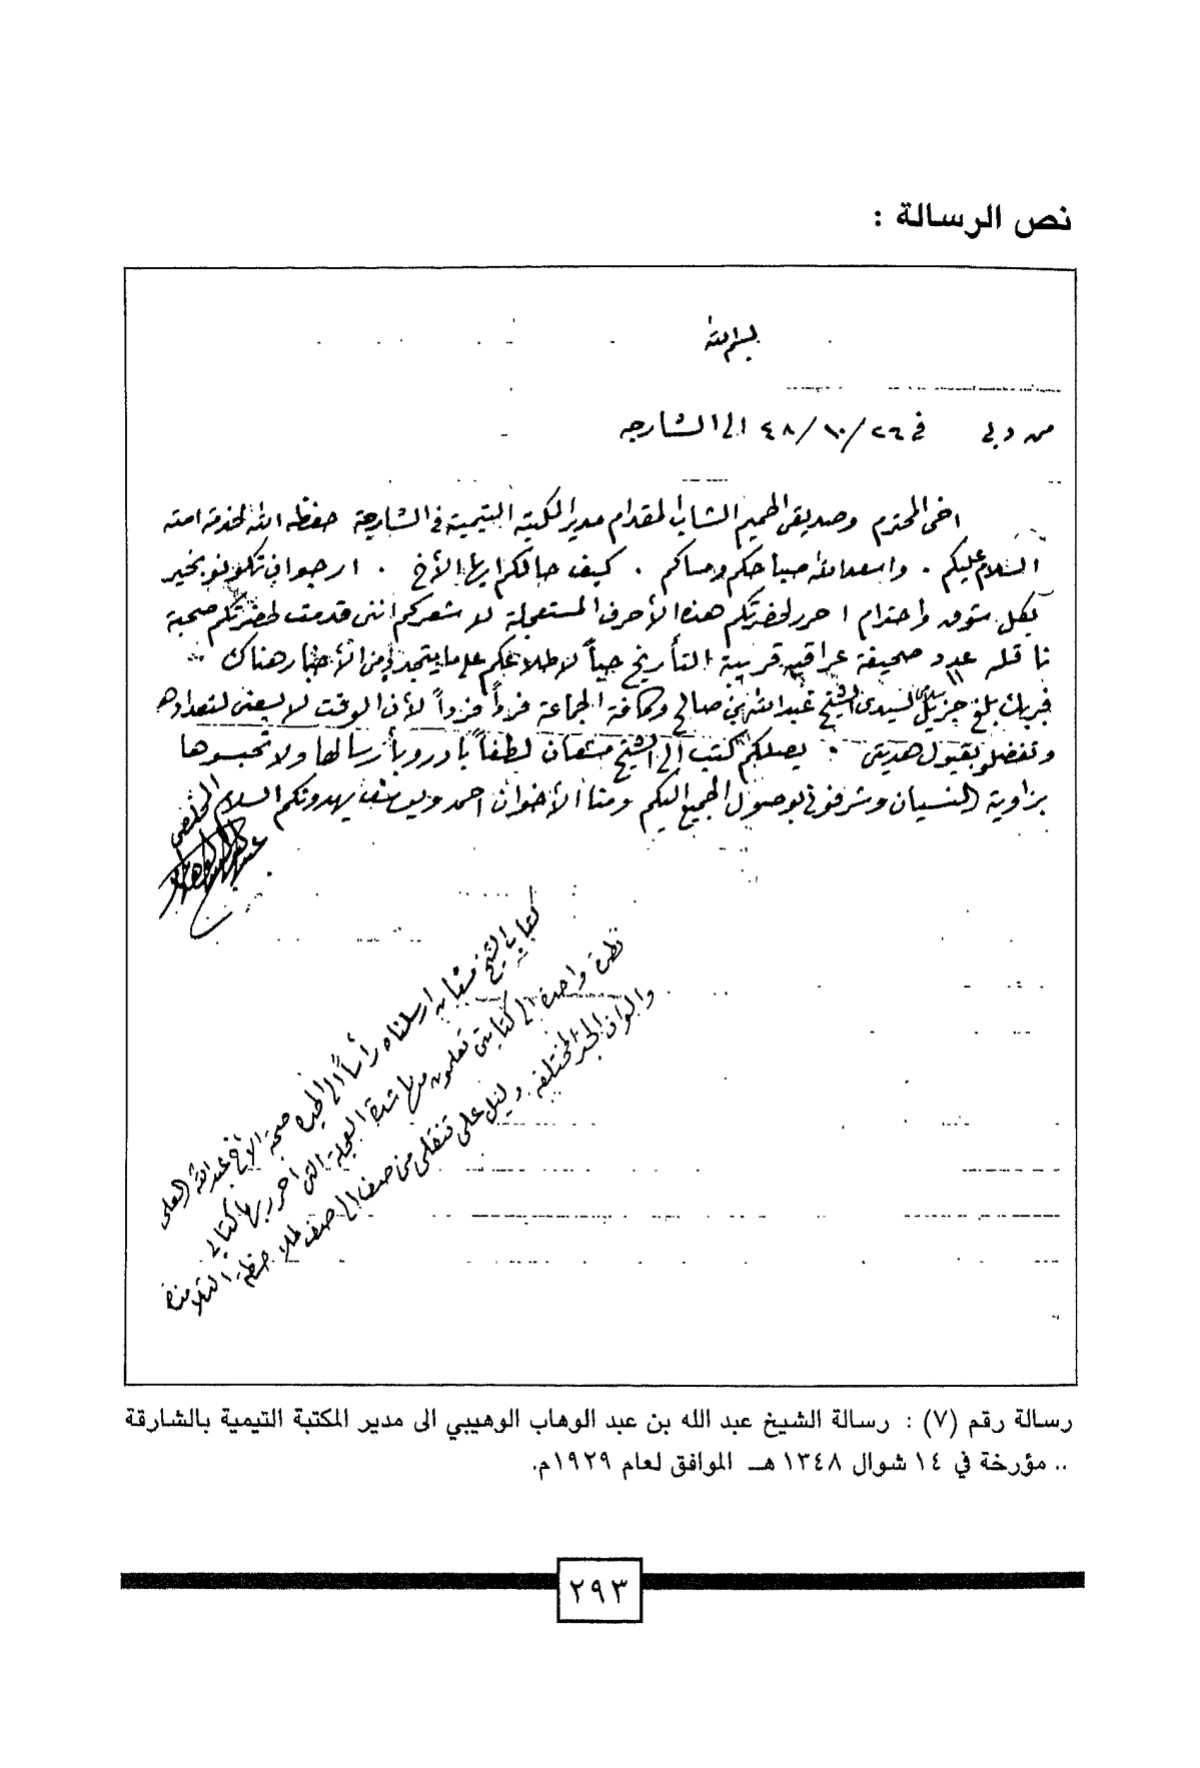 نص الرسالة :
بسم الله
من دبي في ٢٦/١٠/٤٨ الى الشارجه
اخي المحترم وصديقي الحميم الشاب المقدام مدير المكتبة التيمية في الشارجة حفظه الله لخدمة امته
السلام عليكم . واسعد الله صباحكم ومساكم . كيف حالكم ايها الأخ . ارجو ان تكونو بخير
بكل شوق واحترام احرر لحضرتكم هذه الأحرف المستعجلة لاشعركم انني قدمت لحضرتكم صحبة
ناقله عدد ١١ صحيفة عراقيه قريبة التأريخ حباً لاطلاعكم على ما يتجدد من الأخبار هناك
فبربك بلغ جزيل سلامي لسيدي الشيخ عبد الله بن صالح وكافة الجماعة فرداً فرداً لأن الوقت لا يسعني لتعدادهم
وتفضلو بقبول هديتي . يصلكم كتب الى الشيخ مشعان لطفاً بادرو بأرسالها ولا تحبسوها
بزاوية النسيان وشرفوني بوصول الجميع اليكم ومنا الأخوان احمد ويوسف يهدونكم السلام المخلص
كتاب الشيخ مشعان ارسلناه رأساً الى الحيره صحبة الاخ عبد الله العلي
نظرة واحدة الى كتابتي تعلمون منها شدة العجلة التي احرر بها كتابي
والوان الحبر المختلفه دليل على تنقلي من صف الى صف لملاحظة التلامذة
رسالة رقم (٧) : رسالة الشيخ عبد الله بن عبد الوهاب الوهيبي الى مدير المكتبة التيمية بالشارقة
.. مؤرخة في ١٤ شوال ١٣٤٨ هـ الموافق لعام ١٩٢٩م.
٢٩٣